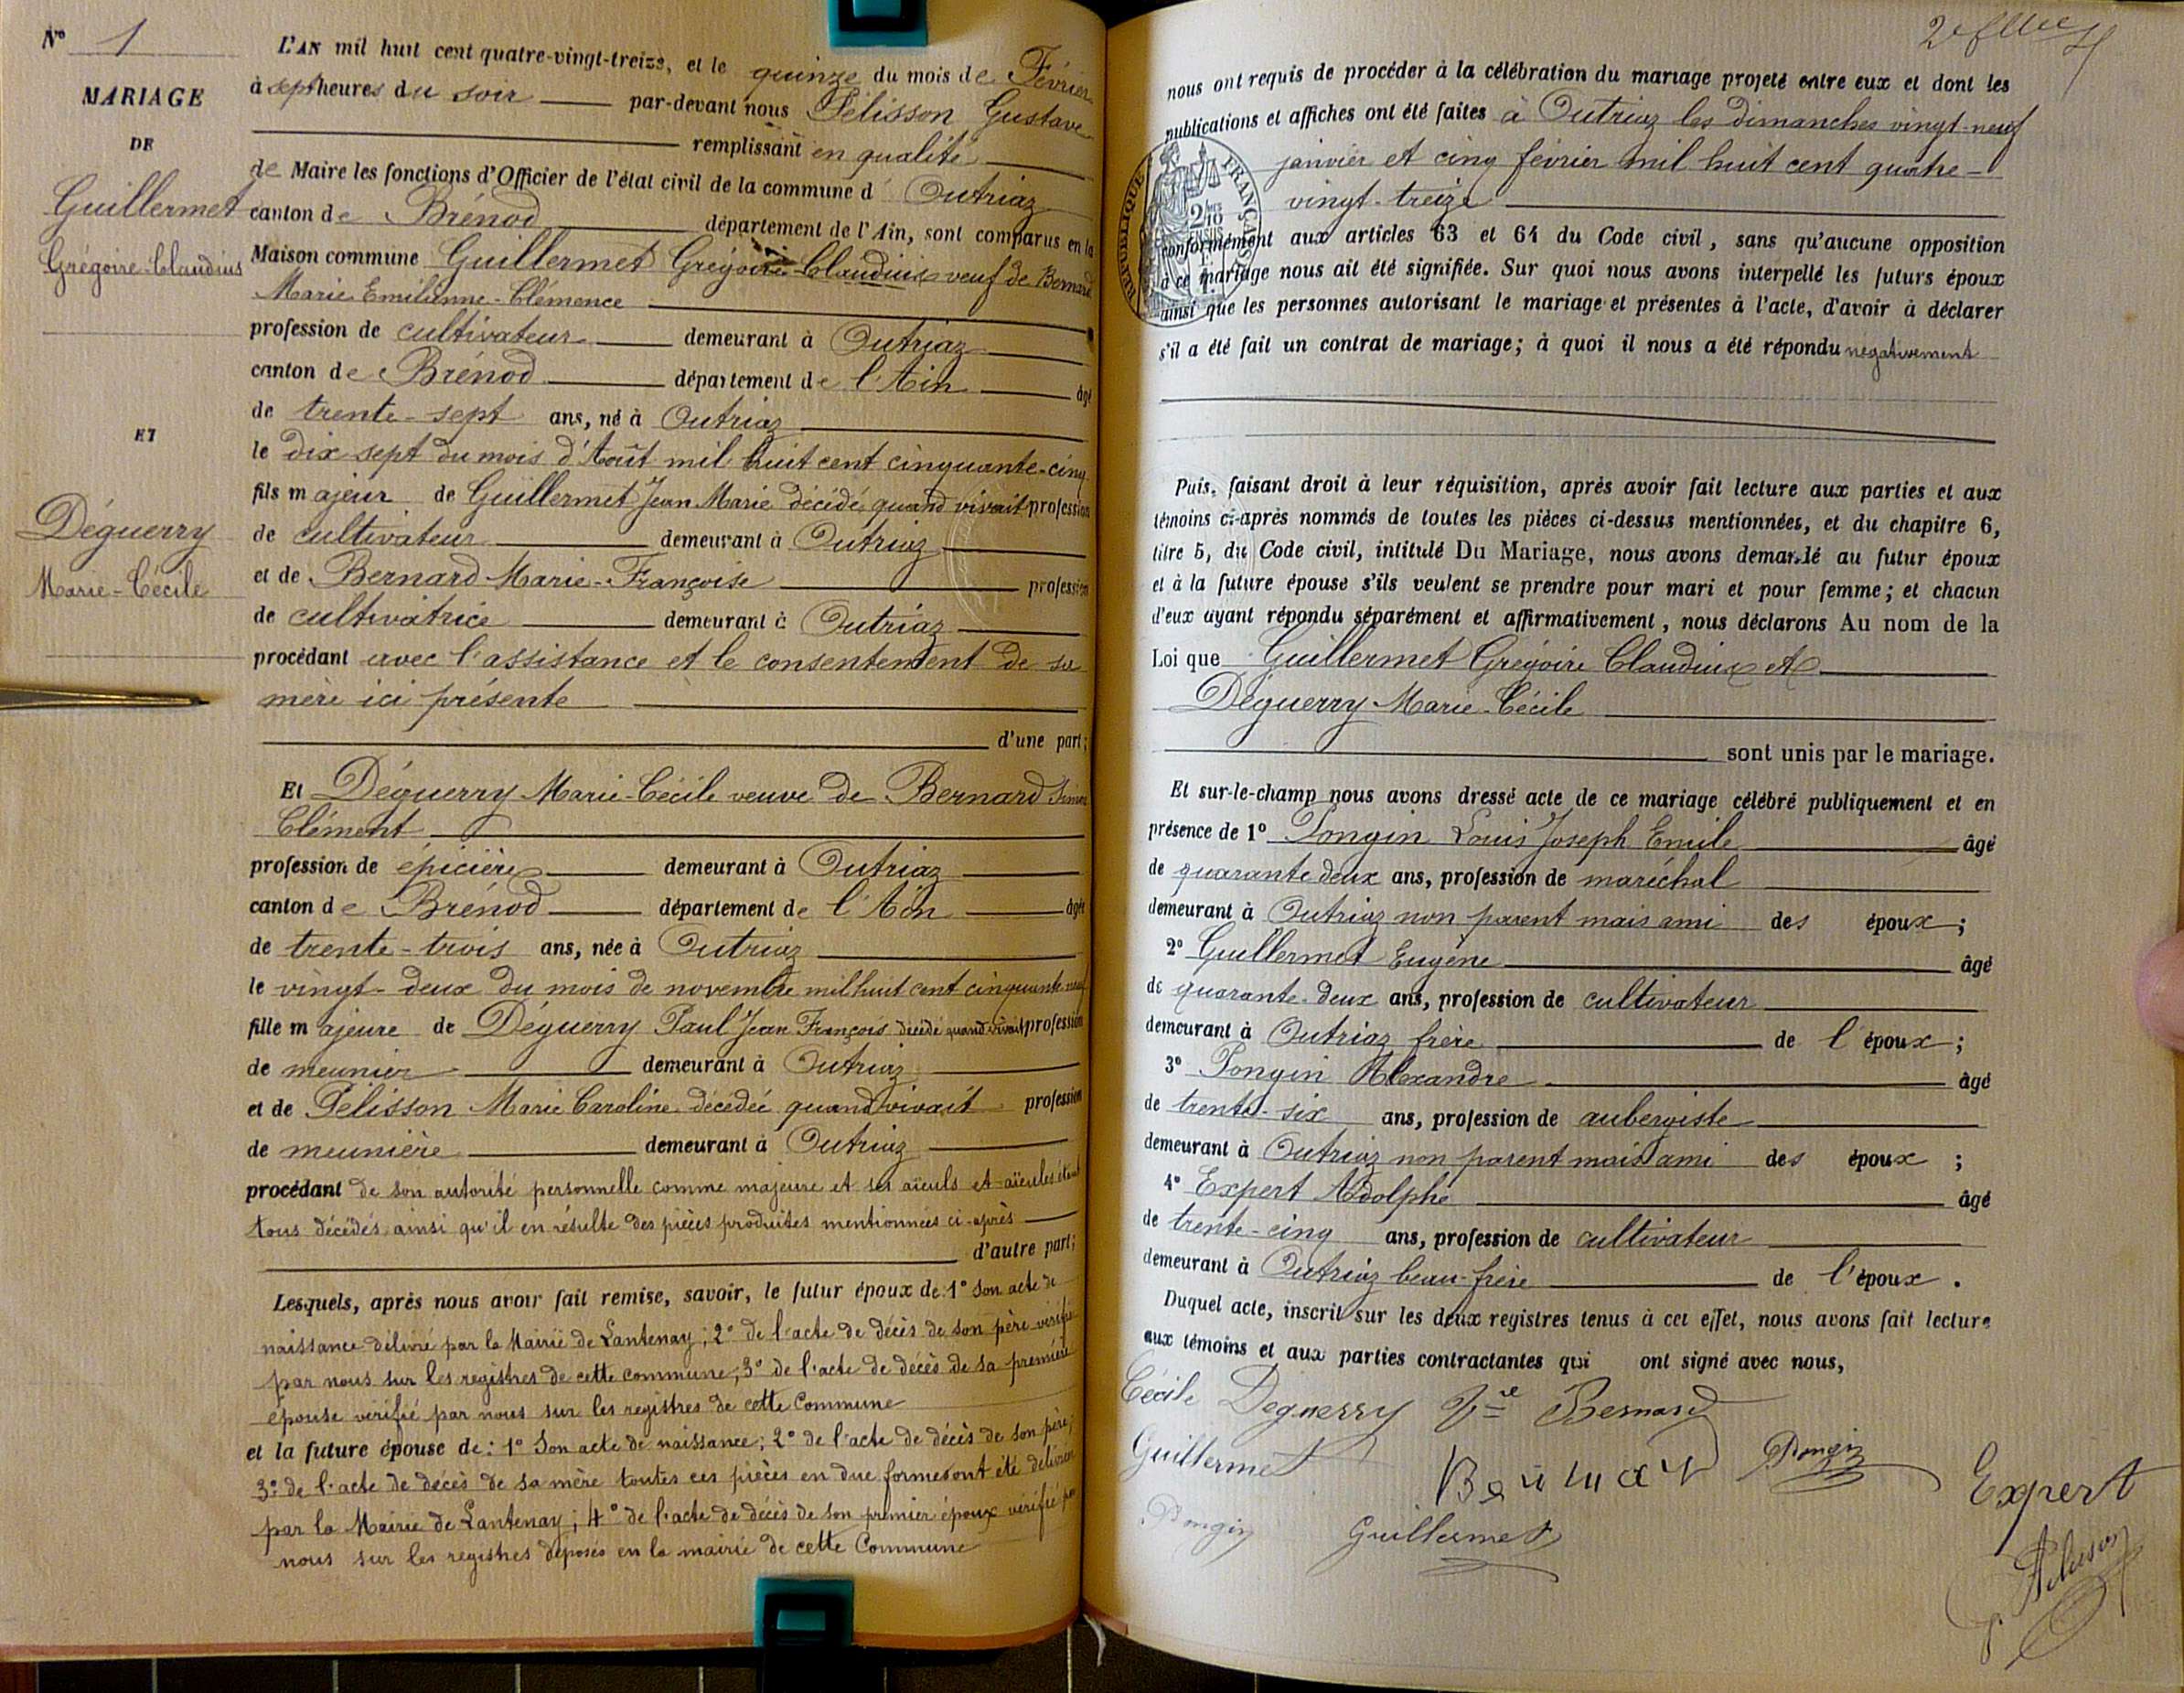 N° 1
MARIAGE
DE
Guillermet
Grégoire-Claudius
ET
Déguerry
Marie-Cécile
L'AN mil huit cent quatre-vingt-treize, et le quinze du mois de Février
à sept heures du soir par-devant nous Pélisson Gustave
remplissant en qualité
de Maire les fonctions d'Officier de l'état civil de la commune d' Outriaz
canton de Brénod département de l'Ain, sont comparus en la
Maison commune Guillermet Grégoire-Claudius veuf de Bernard
Marie Emilienne-Clémence
profession de cultivateur demeurant à Outriaz
canton de Brénod département de l'Ain âgé
de trente-sept ans, né à Outriaz
le dix sept du mois d'Août mil huit cent cinquante-cinq
fils majeur de Guillermet Jean Marie décédé quand vivait profession
de cultivateur demeurant à Outriaz
et de Bernard Marie-Françoise profession
de cultivatrice demeurant à Outriaz
procédant avec l'assistance et le consentement de sa
mère ici présente
d'une part;
Et Déguerry Marie-Cécile veuve de Bernard
Clément
profession de épicière demeurant à Outriaz
canton de Brénod département de l'Ain âgée
de trente-trois ans, née à Outriaz
le vingt-deux du mois de novembre mil huit cent cinquante neuf
fille majeure de Déguerry Paul Jean François décédé quand vivait profession
de meunier demeurant à Outriaz
et de Pélisson Marie Caroline décédée quand vivait profession
de meunière demeurant à Outriaz
procédant de son autorité personnelle comme majeure et ses aïeuls et aïeules étant
tous décédés ainsi qu'il en résulte des pièces produites mentionnées ci-après
d'autre part;
Lesquels, après nous avoir fait remise, savoir, le futur époux de: 1° Son acte de
naissance délivré par la Mairie de Lantenay; 2° de l'acte de décès de son père vérifié
par nous sur les registres de cette commune; 3° de l'acte de décès de sa première
épouse vérifié par nous sur les registres de cette Commune
et la future épouse de: 1° Son acte de naissance; 2° de l'acte de décès de son père;
3° de l'acte de décès de sa mère toutes ces pièces en due forme ont été délivrées
par la Mairie de Lantenay; 4° de l'acte de décès de son premier époux vérifié par
nous sur les registres déposés en la mairie de cette Commune
nous ont requis de procéder à la célébration du mariage projeté entre eux et dont les
publications et affiches ont été faites à Outriaz les dimanches vingt-neuf
janvier et cinq février mil huit cent quatre-
vingt-treize
RÉPUBLIQUE FRANÇAISE
conformément aux articles 63 et 64 du Code civil, sans qu'aucune opposition
à ce mariage nous ait été signifiée. Sur quoi nous avons interpellé les futurs époux
ainsi que les personnes autorisant le mariage et présentes à l'acte, d'avoir à déclarer
s'il a été fait un contrat de mariage; à quoi il nous a été répondu négativement
Puis, faisant droit à leur réquisition, après avoir fait lecture aux parties et aux
témoins ci-après nommés de toutes les pièces ci-dessus mentionnées, et du chapitre 6,
titre 5, du Code civil, intitulé Du Mariage, nous avons demandé au futur époux
et à la future épouse s'ils veulent se prendre pour mari et pour femme; et chacun
d'eux ayant répondu séparément et affirmativement, nous déclarons Au nom de la
Loi que Guillermet Grégoire Claudius et
Déguerry Marie-Cécile
sont unis par le mariage.
Et sur-le-champ nous avons dressé acte de ce mariage célébré publiquement et en
présence de 1° Pongin Louis Joseph Emile âgé
de quarante deux ans, profession de maréchal
demeurant à Outriaz non parent mais ami des époux;
2° Guillermet Eugène âgé
de quarante-deux ans, profession de cultivateur
demeurant à Outriaz frère de l'époux;
3° Pongin Alexandre âgé
de trente-six ans, profession de aubergiste
demeurant à Outriaz non parent mais ami des époux;
4° Expert Adolphe âgé
de trente-cinq ans, profession de cultivateur
demeurant à Outriaz beau-frère de l'époux.
Duquel acte, inscrit sur les deux registres tenus à cet effet, nous avons fait lecture
aux témoins et aux parties contractantes qui ont signé avec nous,
Cécile Deguerry Vve Bernard
Guillermet Pongin Expert
Pongin Guillermet